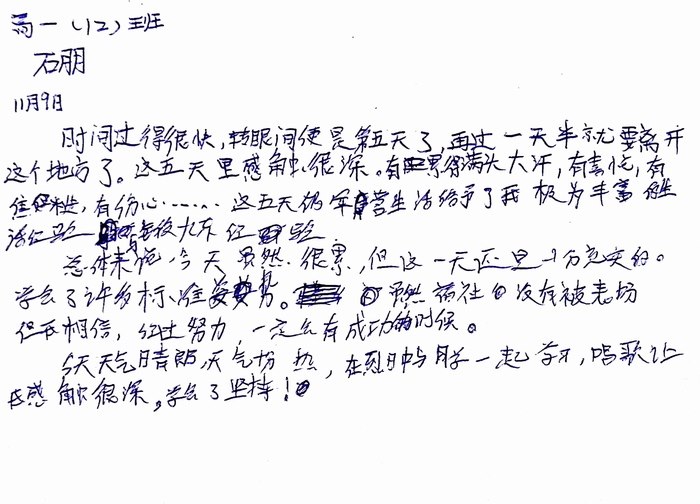 高一(12)班
石朋
11月9日
时间过得很快,转眼间便是第五天了,再过一天半就要离开
这个地方了。这五天里感触很深。有累得满头大汗,有喜悦,有
有伤心……这五天的军营生活给予了我极为丰富
总体来说,今天虽然很累,但这一天还是十分充实的。
学会了许多标准姿势。虽然 没有被表扬
但我相信,经过努力,一定会有成功的时候。
今天天气晴朗,天气恨热,在烈日中与同学一起学习,唱歌让
我感触很深,学会了坚持!